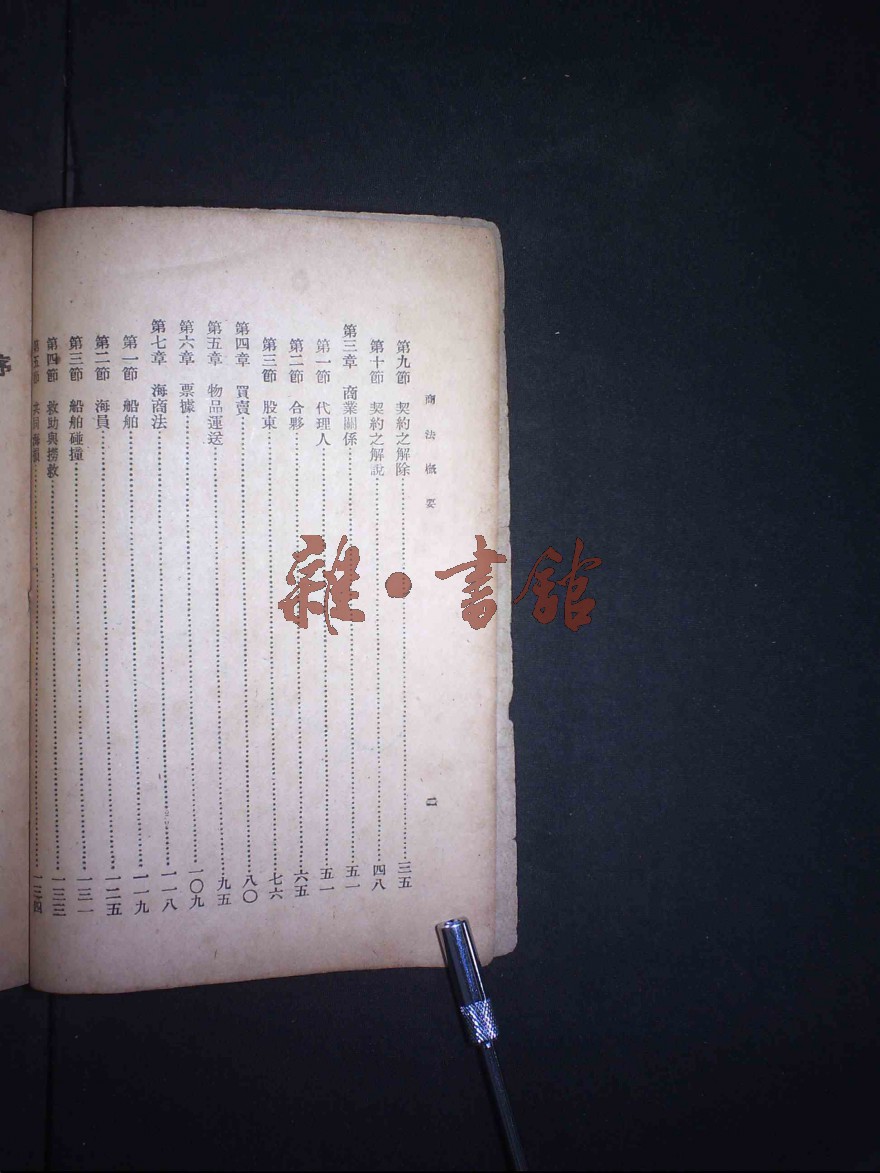 商法概要
二
第九節 契約之解除……三五
第十節 契約之解說……四八
第三章 商業關係……五一
第一節 代理人……五一
第二節 合夥……六五
第三節 股東……七六
第四章 買賣……八〇
第五章 物品運送……九五
第六章 票據……一〇九
第七章 海商法……一一八
第一節 船舶……一一九
第二節 海員……一二五
第三節 船舶碰撞……一三一
第四節 救助與撈救……一三三
第五節 共同海損……一三四
序
雜·書館